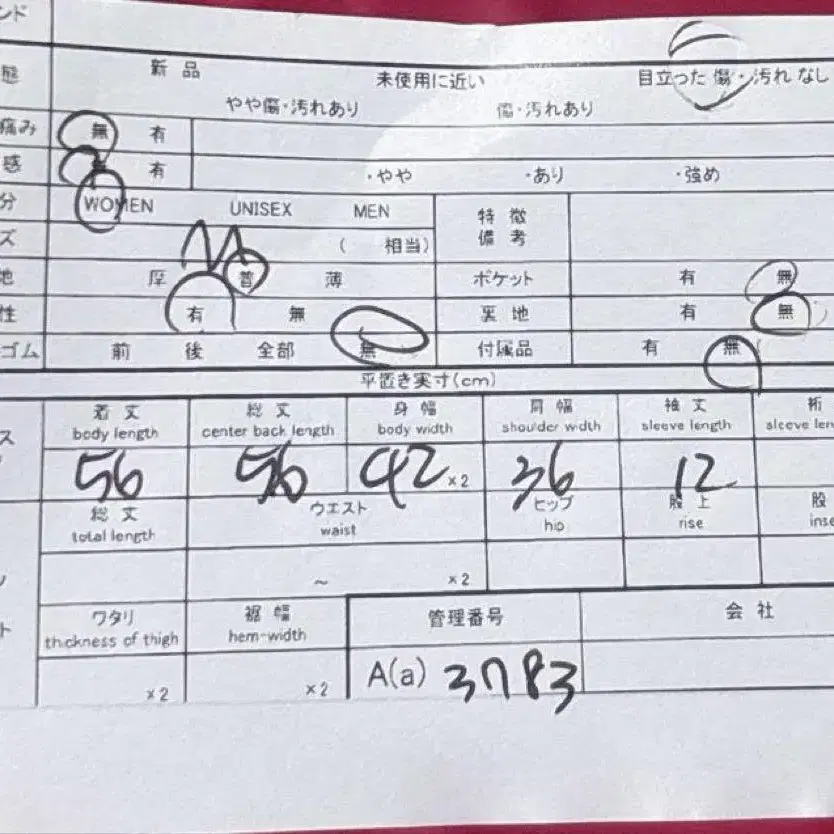 ンド
態 新品 未使用に近い 目立った傷・汚れなし
やや傷・汚れあり 傷・汚れあり
痛み 無 有
感 有 ・やや ・あり ・強め
分 WOMEN UNISEX MEN 特徴
備考
ズ M ( 相当)
地 厚 普 薄 ポケット 有 無
性 有 無 裏地 有 無
ゴム 前 後 全部 無 付属品 有 無
平置き実寸(cm)
着丈 総丈 身幅 肩幅 袖丈 裄
ス body length center back length body width shoulder width sleeve length sleeve len
56 56 42 ×2 36 12
総丈 ウエスト ヒップ 股上 股
total length waist hip rise inse
~ ×2
ト ワタリ 裾幅 管理番号 会社
thickness of thigh hem-width
×2 ×2 A(a) 3783